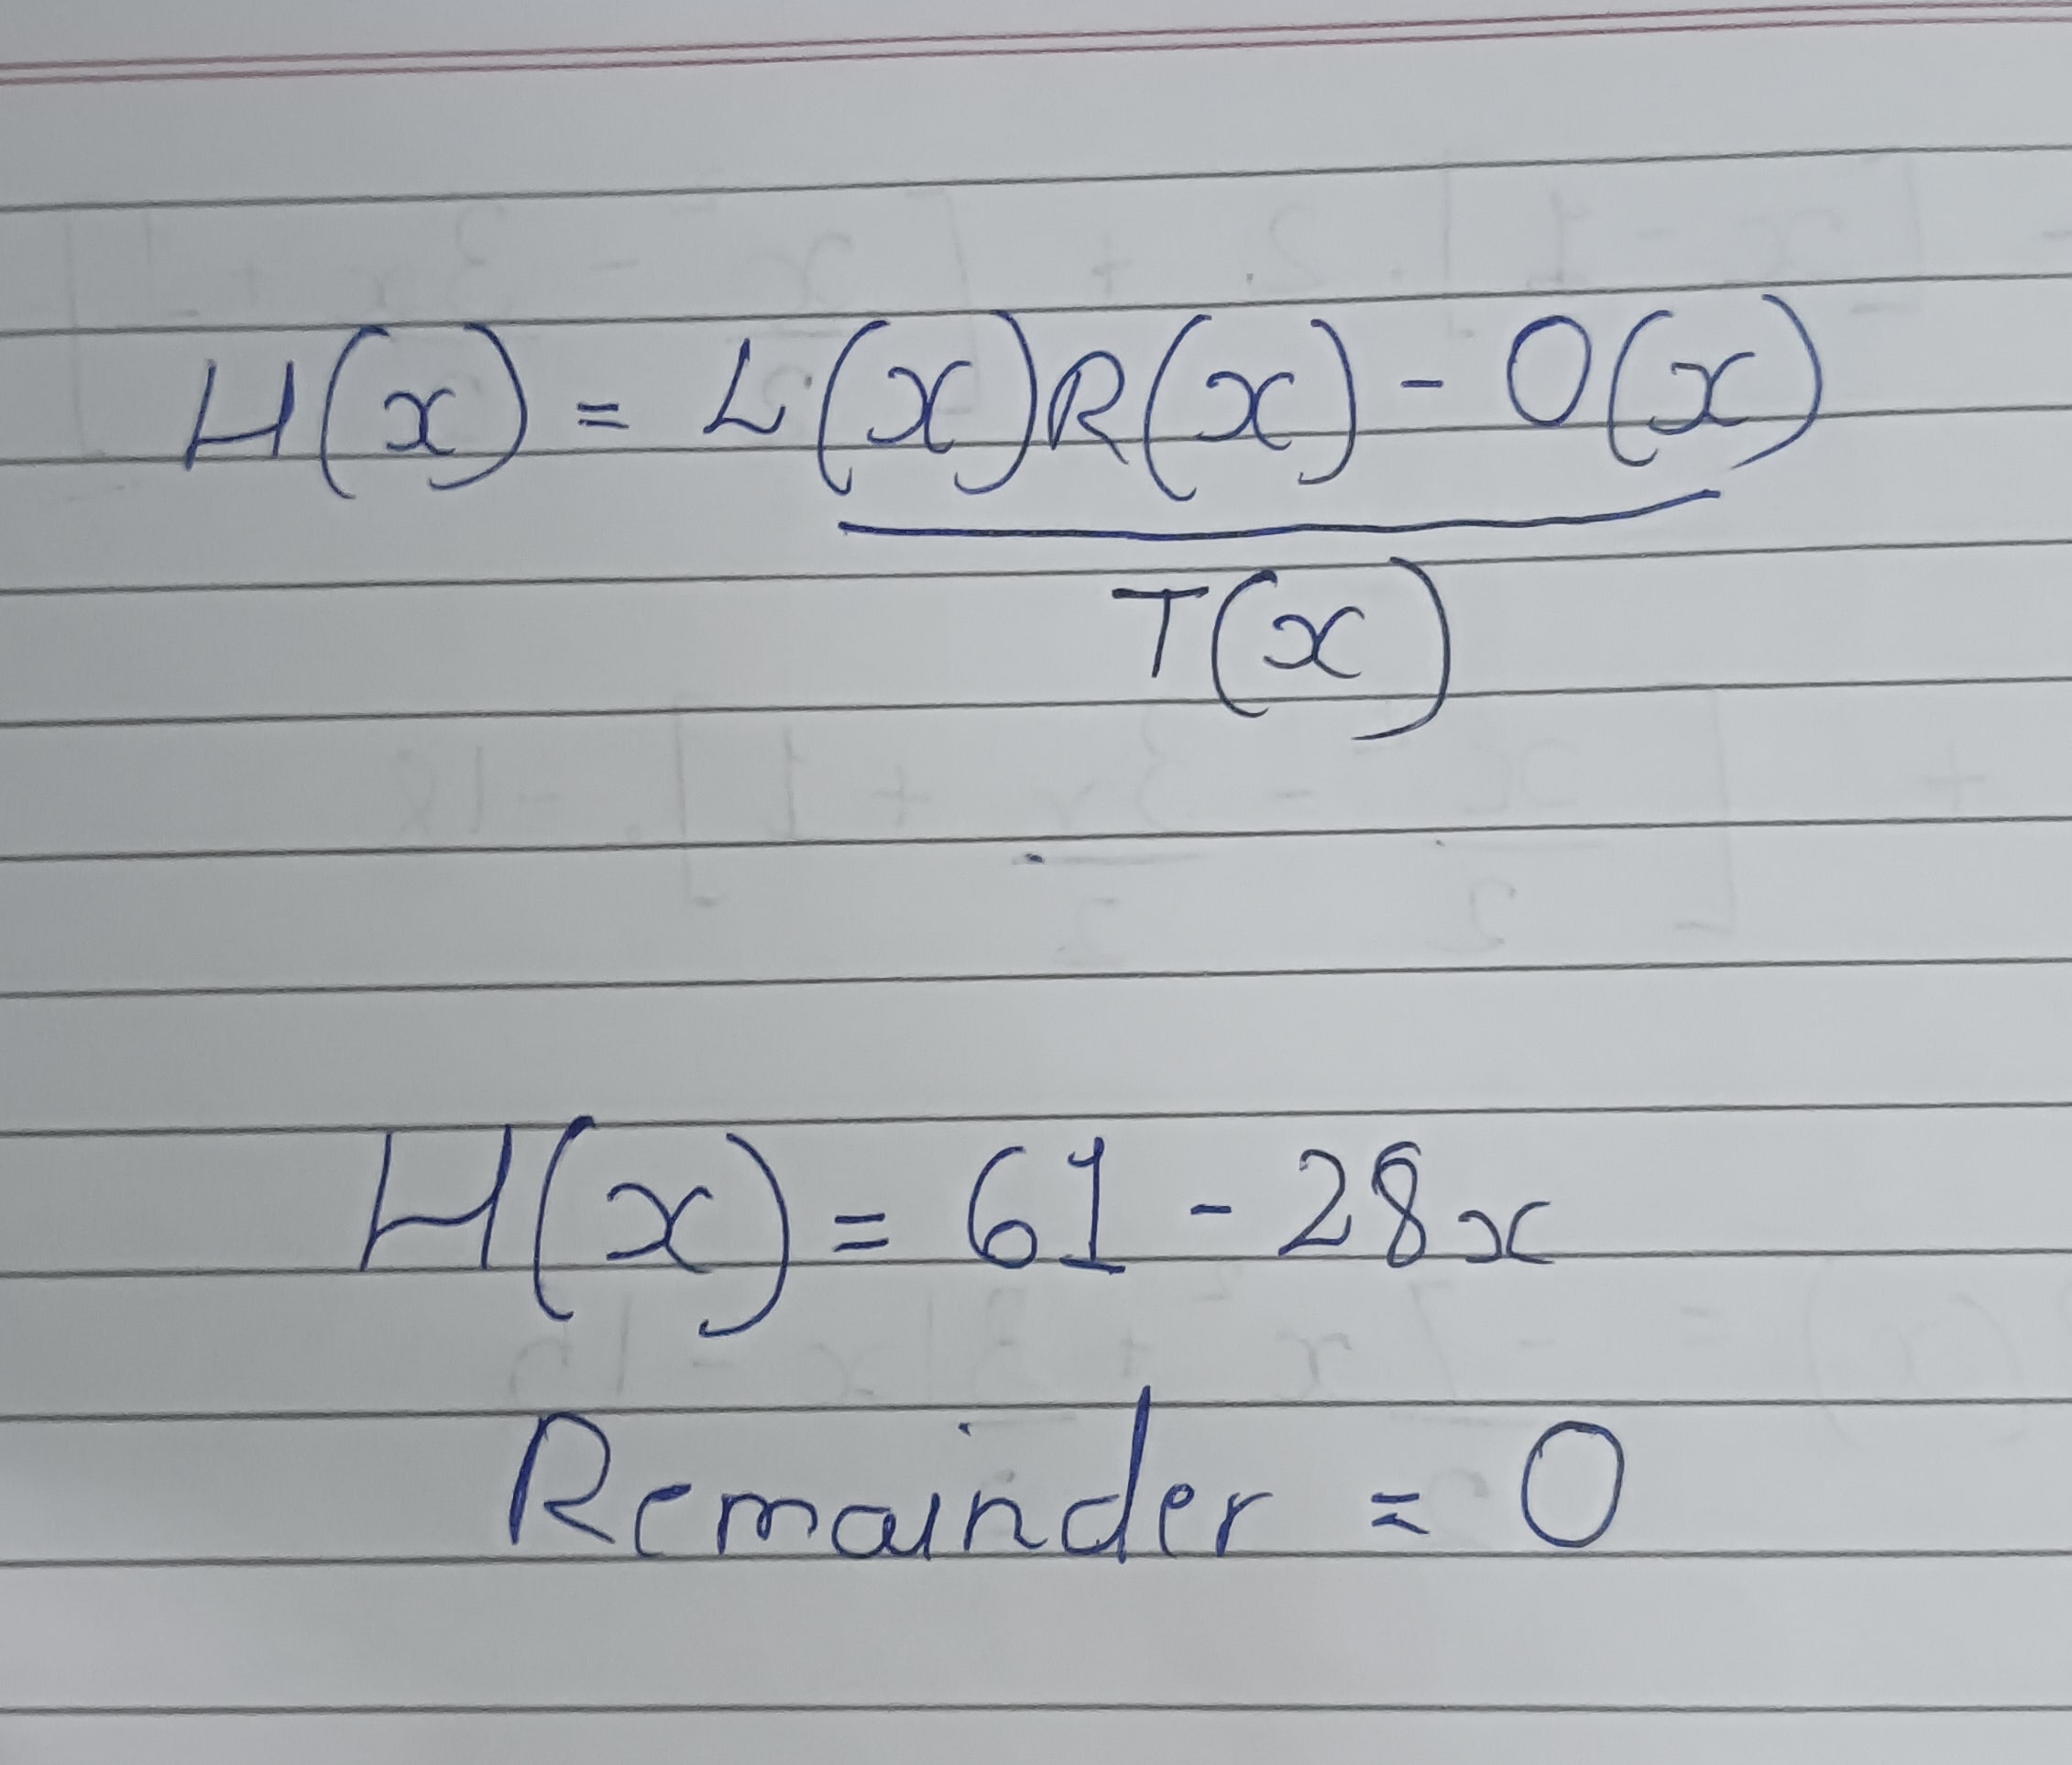 H(x) = L(x)R(x) - O(x)
T(x)
H(x) = 61 - 28x
Remainder = 0